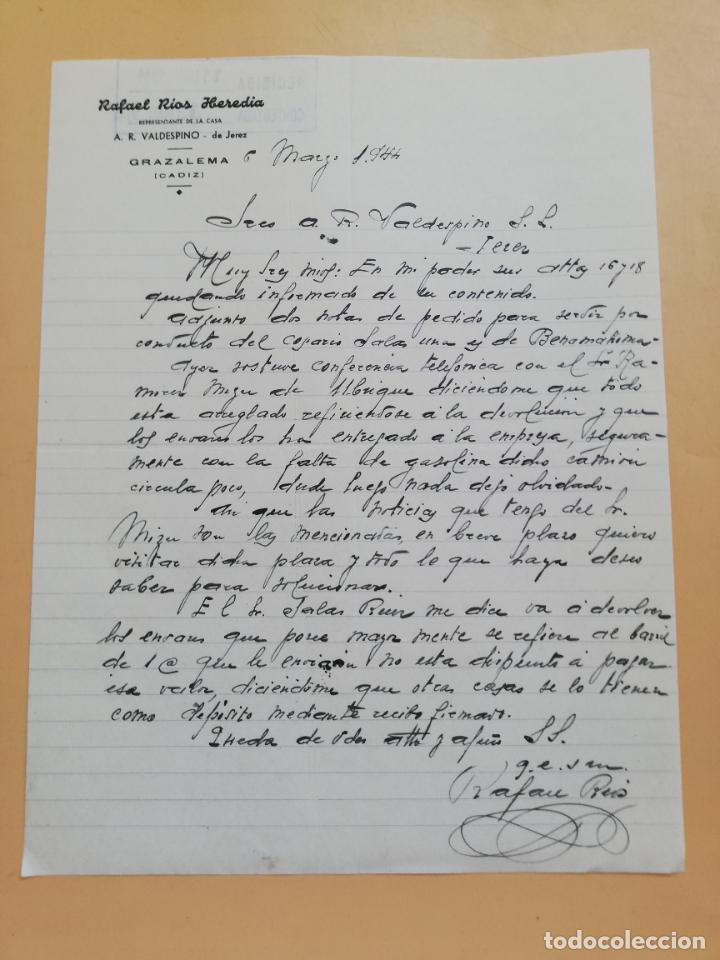 RECIBIDA
CONTESTADA
Rafael Rios Heredia
REPRESENTANTE DE LA CASA
A. R. VALDESPINO - de Jerez
GRAZALEMA
(CADIZ)
6 Marzo 1.944
Sres A. R. Valdespino S. L.
- Jerez
Muy Srs mios: En mi poder sus attas 16 y 18
quedando informado de su contenido.
adjunto dos notas de pedido para servir por
conducto del cosario Salas una y de Benamahoma-
Ayer sostuve conferencia telefonica con el Sr Ra-
mirez de Ubrique diciendome que todo
esta arreglado refiriendose á la devolucion y que
los envases los ha entregado á la empresa, segura-
mente con la falta de gasolina dicho camion
circula poco, desde luego nada dejo olvidado-
Asi que las noticias que tengo del Sr.
son las mencionadas, en breve plazo quiero
visitar dicha plaza y todo lo que haya deseo
saber para solucionar.
El Sr. Salas Ruiz me dice va á devolver
los envases que posee mayormente se refiere al barril
de 1 @ que le envian no esta dispuesto á pagar
ese valor, diciendome que otras casas se lo tienen
como depósito mediante recibo firmado.
Queda de Vdes atto y afmo SS.
q. e. s m.
Rafael Rios
todocoleccion